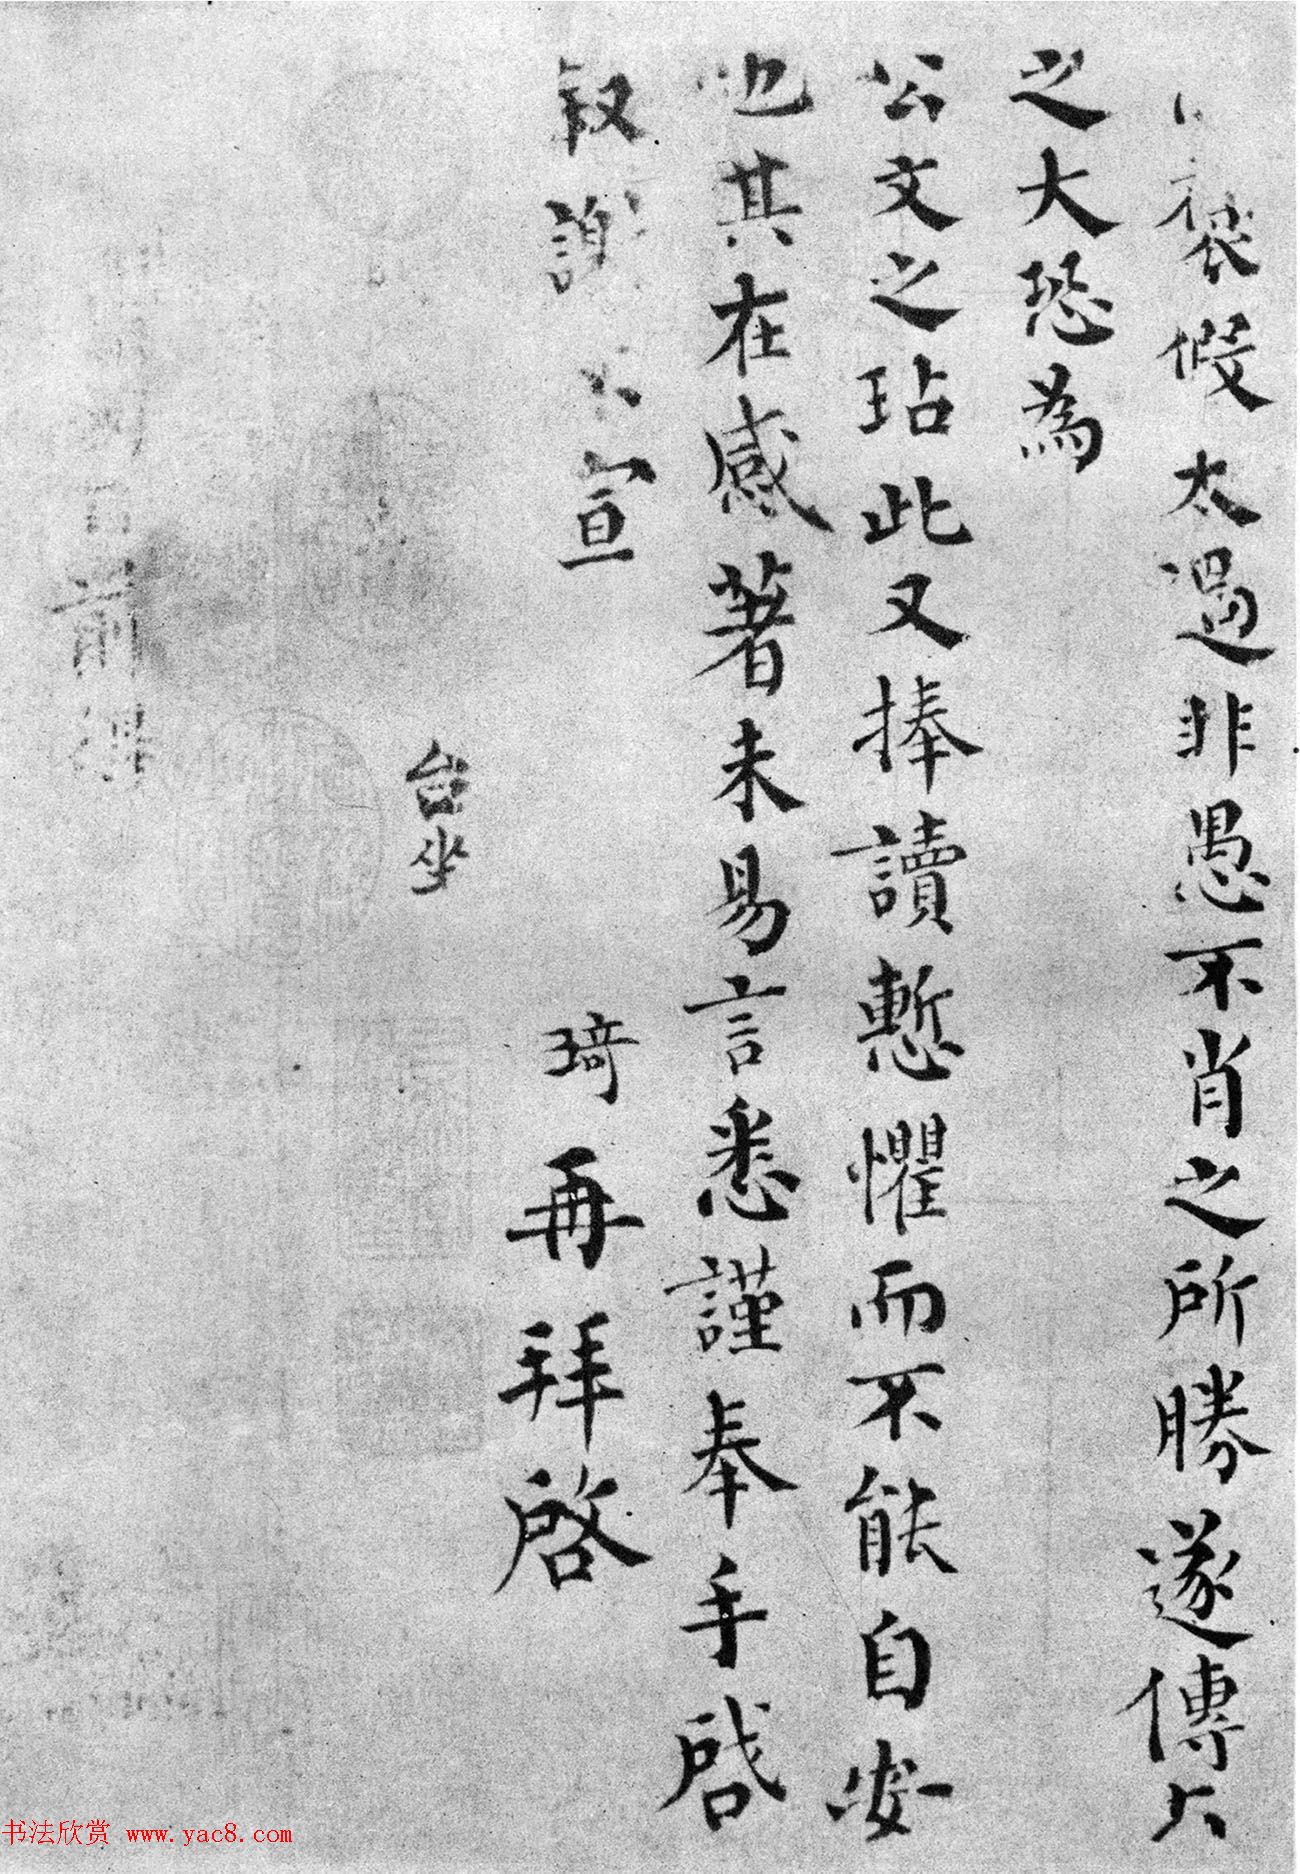 褒假太過非愚不肖之所勝遂傳
之大恐為
公文之玷此又捧讀慙懼而不能自安
也其在感著未易言悉謹奉手啓
敘謝不宣 琦再拜啓
台坐
前
书法欣赏 www.yac8.com